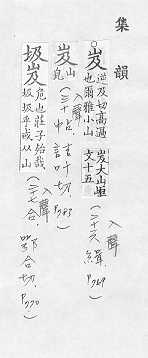 集韻
岌逆及切高過
也爾雅小山
岌大山峘
文十五
入聲(二十六緝,P.769
岌山
皃
入聲(三十帖,吉叶切,P.783)
圾岌危也莊子殆哉
圾圾乎或从山
入聲(二十七合,鄂合切,P.770)